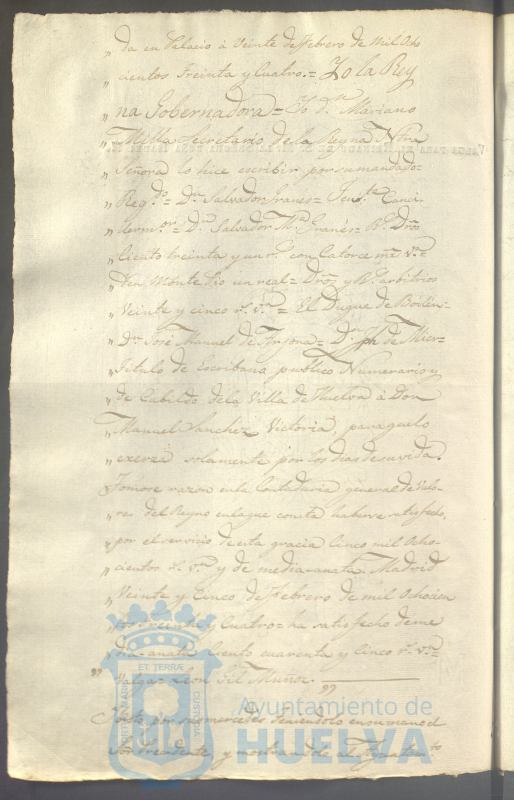 „ da en Palacio á Veinte de Febrero de Mil Ocho
„ cientos Treinta y Cuatro.= Yo la Rey
„ na Gobernadora = Yo Dn Mariano
„ Milla Secretario de la Reyna Ntra
„ Señora lo hice escribir por su mandado=
„ Regdo = Dn Salvador Granes = Tente Canci
„ ller mor = Dn Salvador Ma Granés = Rs Dros
„ Ciento treinta y un rs con Catorce ms vn=
„ Den Monte Pio un real = Dros y Rs arbitrios
„ Veinte y cinco rs vn = El Duque de Bailén=
„ Dn José Manuel de Arjona = Dn Jph de Mier=
„ Titulo de Escribano publico Numerario y
„ de Cabildo de la Villa de Huelva á Don
„ Manuel Sanchez Victoria, para que lo
„ exerza solamente por los dias de su vida.
„ Tomose razon en la Contaduria general de Valo-
„ res del Reyno en la que consta haberse satisfecho
„ por el servicio de esta gracia Cinco mil Ocho-
„ cientos rs vn y de media-anata Madrid
„ Veinte y Cinco de Febrero de mil Ochocien
„ tos treinta y Cuatro = ha satisfecho de me
„ dia-anata Ciento cuarenta y cinco rs vn=
„ Valga= Gil Muñoz.
Visto por sus mercedes teniendolo en su mano el
Sor Presidente y mostrandole al Ayuntamto
ET TERRÆ
CUSTODIA
Ayuntamiento de
HUELVA